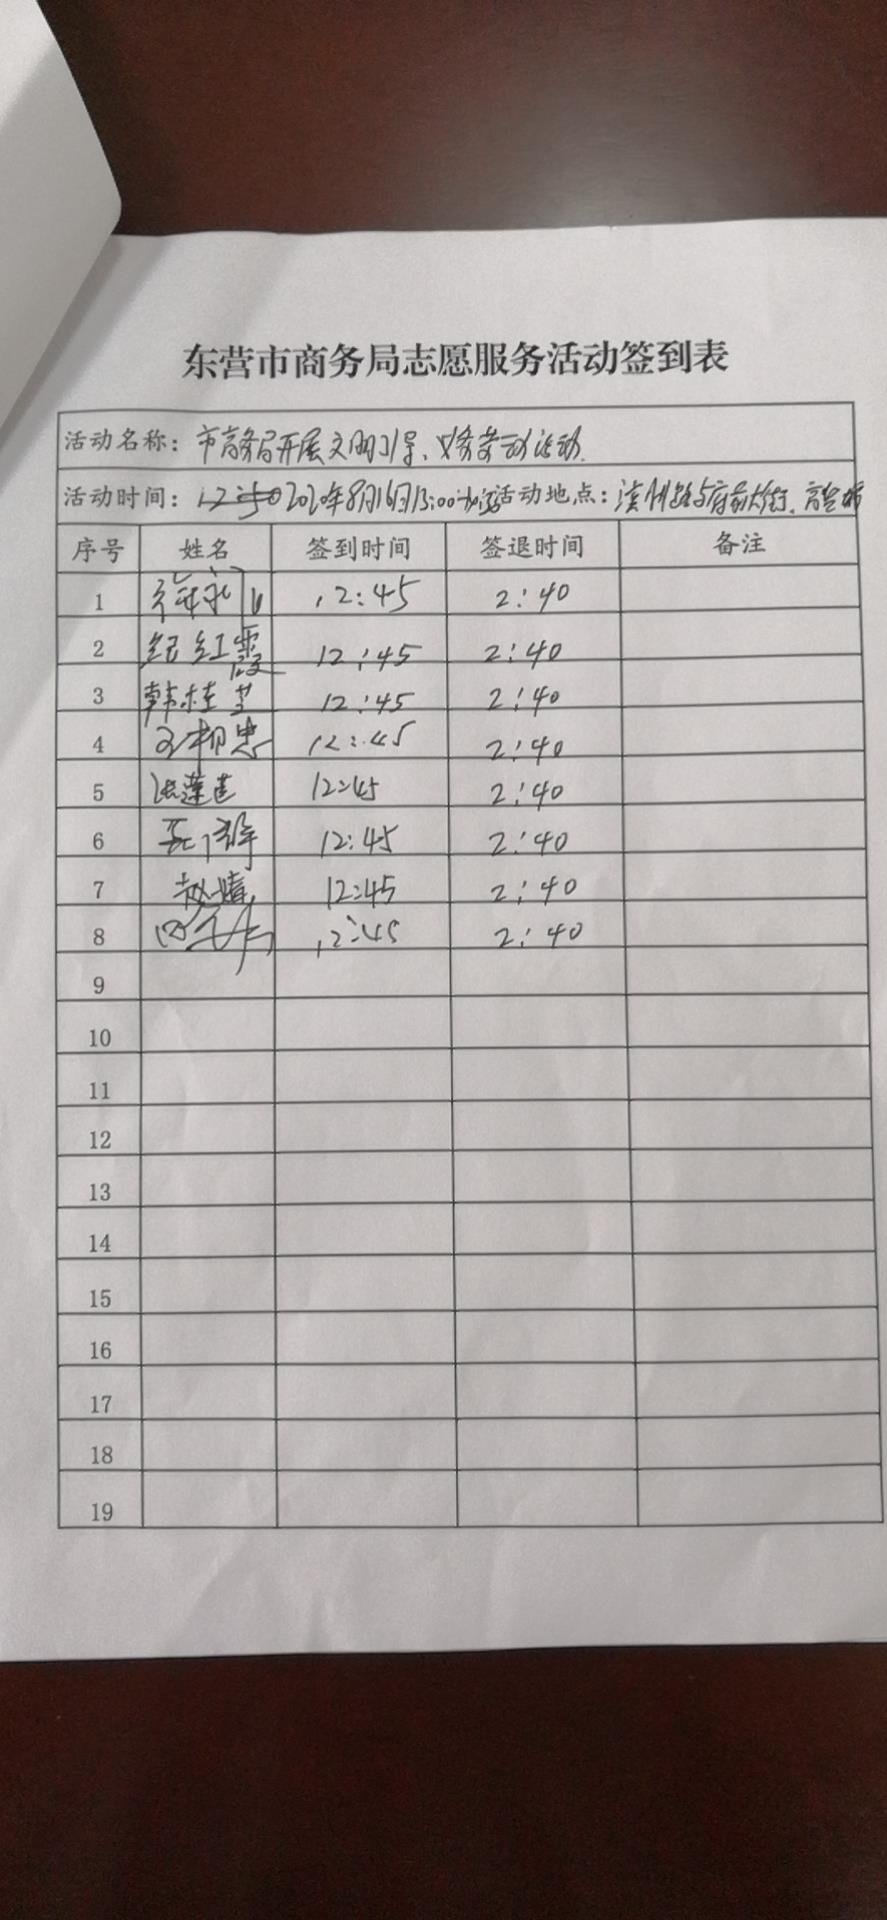 东营市商务局志愿服务活动签到表
活动名称：市商务局开展文明引导、义务劳动活动.
活动时间：2020年8月16日13:00 活动地点：滨州路与府前大街、
序号 姓名 签到时间 签退时间 备注
1 12:45 2:40
2 纪红霞 12:45 2:40
3 韩桂芝 12:45 2:40
4 12:45 2:40
5 张莲莲 12:45 2:40
6 12:45 2:40
7 赵婧 12:45 2:40
8 12:45 2:40
9
10
11
12
13
14
15
16
17
18
19